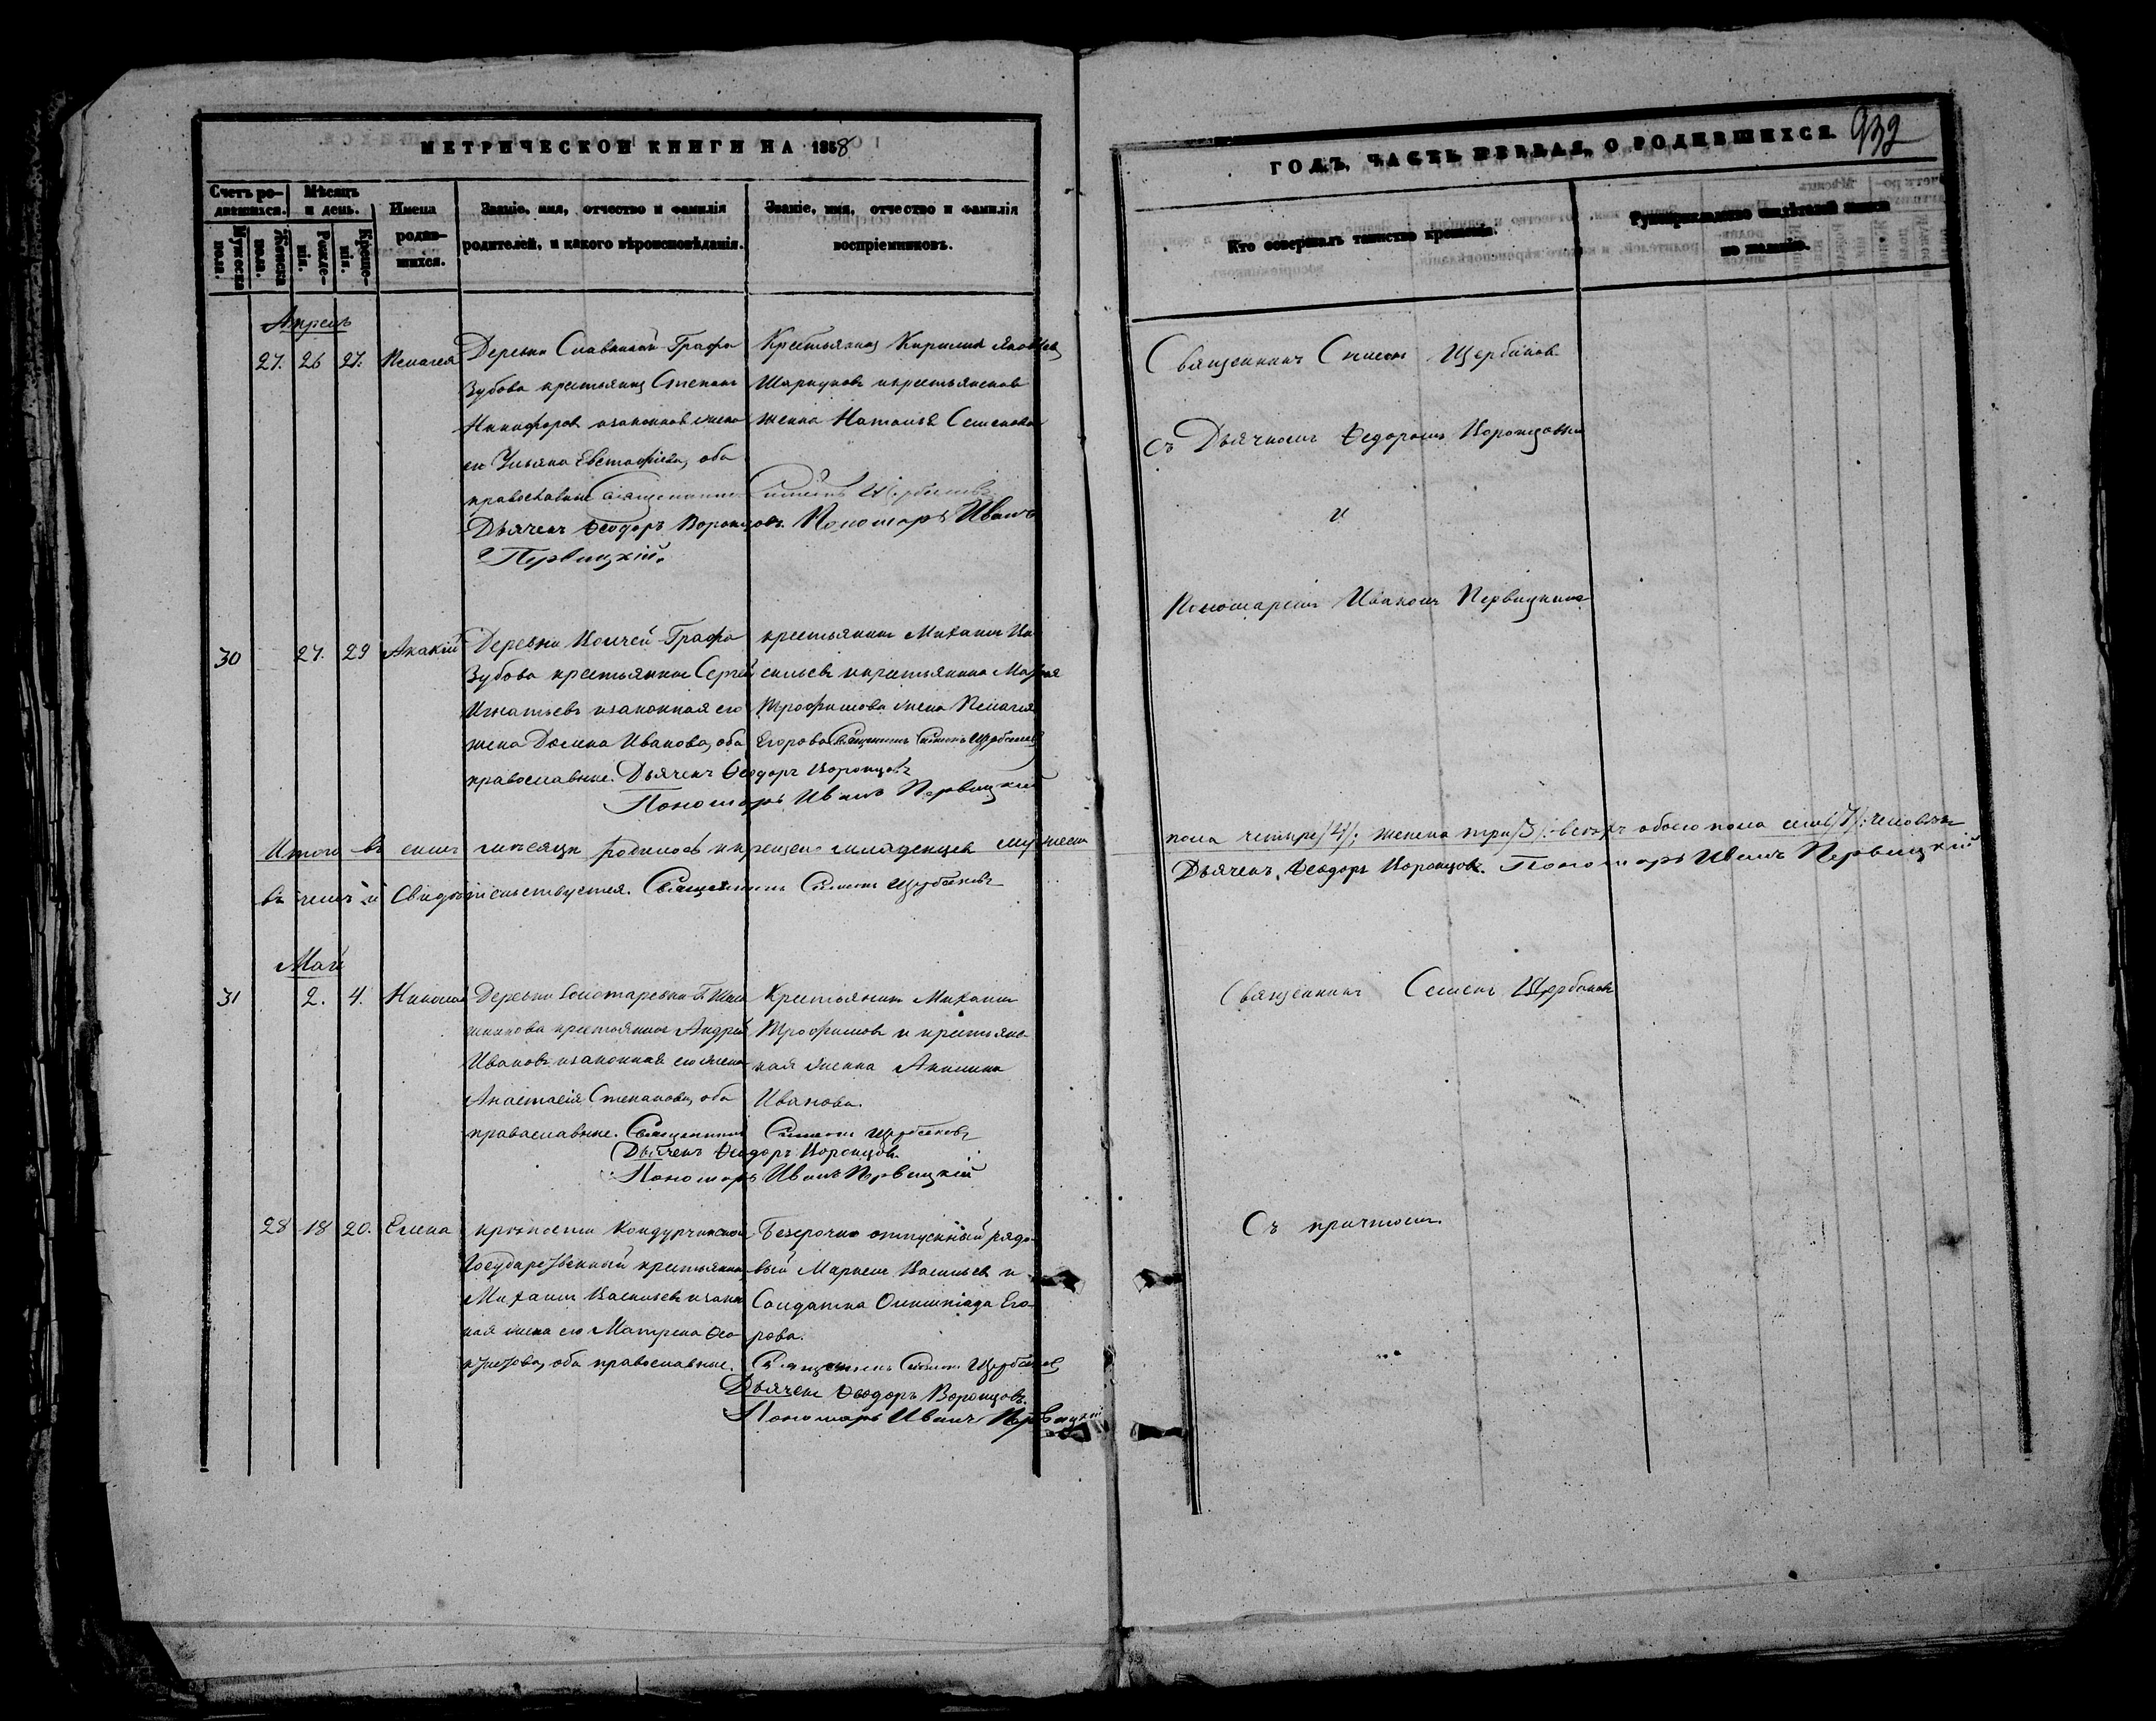 МЕТРИЧЕСКОЙ КНИГИ НА 1858
Счетъ ро-дившихся.
Мѣсяцъ и день.
Мужеска пола.
Женска пола.
Рожде-нія.
Креще-нія.
Имена родив-шихся.
Званіе, имя, отчество и фамилія родителей, и какого вѣроисповѣданія.
Званіе, имя, отчество и фамилія воспріемниковъ.
Апрель
27. 26 27. Пелагея
Деревни Графа
Зубова крестьянинъ Степанъ
Никифоровъ и законная жена
его Ульяна Евстафіева, оба
православные
Крестьянинъ Кирилла Яковлевъ
и крестьянская
женка Наталья Семенова
Священникъ Симеонъ Щербаковъ
Дьячекъ Ѳеодоръ Воронцовъ. Пономарь Иванъ
Первицкій.
30 27. 29 Акакій
Деревни Графа
Зубова крестьянинъ Сергей
Игнатьевъ и законная его
жена Ивановна, оба
православные.
крестьянинъ Михаилъ Ва-
сильевъ и крестьянина
Трофимова жена Пелагея
Егорова Священникъ Симеонъ Щербаковъ
Дьячекъ Ѳеодоръ Воронцовъ
Пономарь Иванъ Первицкій
Итого въ семъ месяце родилось и крещено младенцевъ мужеска
въ чемъ и Свидѣтельствуется. Священникъ Симеонъ Щербаковъ
Май
31 2. 4. Николай
Деревни
крестьянинъ Андрей
Ивановъ и законная его жена
Анастасія Степанова, оба
православные.
Крестьянинъ Михаилъ
Трофимовъ и крестьянс-
кая женка Акилина
Иванова.
Священникъ Симеонъ Щербаковъ
Дьячекъ Ѳеодоръ Воронцовъ.
Пономарь Иванъ Первицкій
28 18 20. Елена
крѣпости Кондурчинской
Государственный крестьянинъ
Михаилъ Васильевъ и закон
ная жена его Матрена
оба православные.
Безсрочно отпускный рядо-
вый Маркелъ Васильевъ и
Солдатка Олимпіада Его-
рова.
Священникъ Симеонъ Щербаковъ
Дьячекъ Ѳеодоръ Воронцовъ.
Пономарь Иванъ Первицкій
ГОДЪ, ЧАСТЬ ПЕРВАЯ, О РОДИВШИХСЯ.
932
Кто совершалъ таинство крещенія.
Рукоприкладство свидѣтелей записи по желанію.
Священникъ Симеонъ Щербаковъ
съ Дьячкомъ Ѳедоромъ Воронцовымъ
и
Пономаремъ Иваномъ Первицкимъ
пола четыре /4/; женска три /3/. всего обоего пола семь /7/. человѣкъ
Дьячекъ Ѳеодоръ Воронцовъ. Пономарь Иванъ Первицкій
Священникъ Семенъ Щербаковъ
Съ причтомъ.